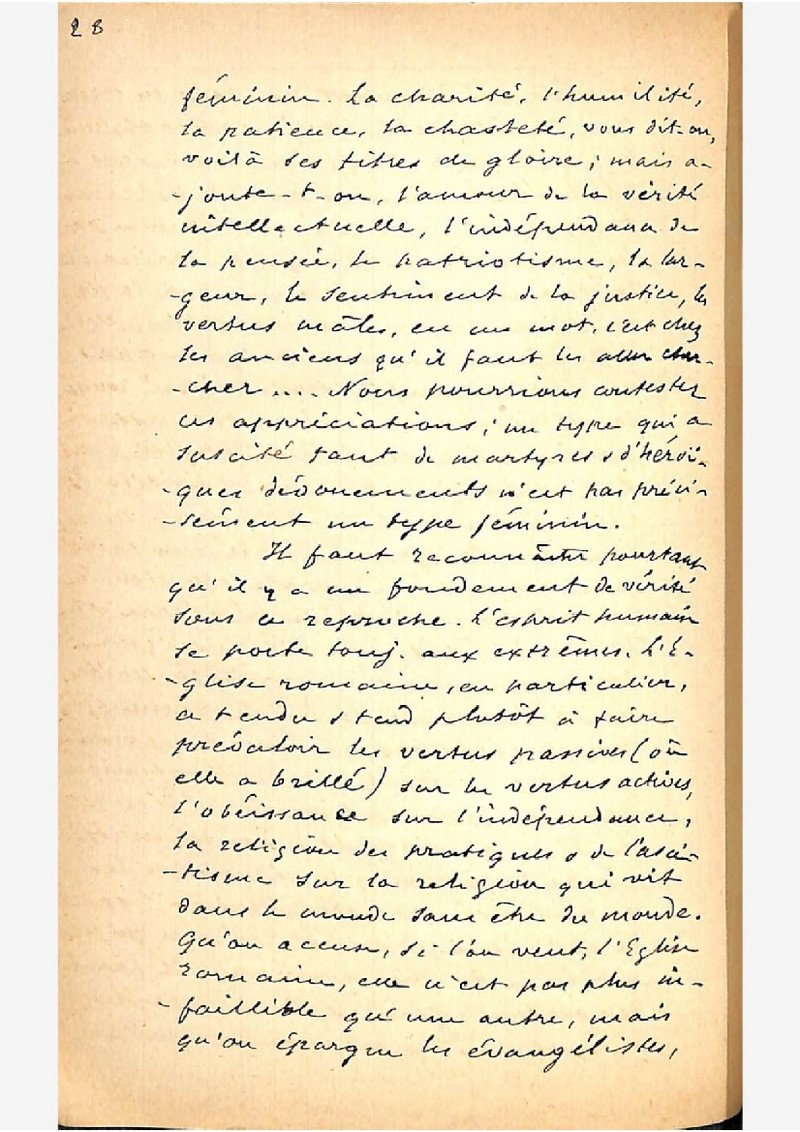 28
féminin. La charité, l'humilité,
la patience, la chasteté, vous dit-on,
voilà ses titres de gloire; mais a-
-joute-t-on, l'amour de la vérité
intellectuelle, l'indépendance de
la pensée, le patriotisme, la lar-
-geur, le sentiment de la justice, les
vertus mâles, en un mot, c'est chez
les anciens qu'il faut les aller cher-
-cher .... Nous pourrions contester
ces appréciations; un type qui a
suscité tant de martyres & d'héroï-
-ques dévouements n'est pas préci-
-sément un type féminin.
Il faut reconnaître pourtant
qu'il y a un fondement de vérité
sous ce reproche. L'esprit humain
se porte touj. aux extrêmes. L'É-
-glise romaine, en particulier,
a tendu & tend plutôt à faire
prévaloir les vertus passives (où
elle a brillé) sur les vertus actives,
l'obéissance sur l'indépendance,
la religion des pratiques & de l'ascé-
-tisme sur la religion qui vit
dans le monde sans être du monde.
Qu'on accuse, si l'on veut, l'Eglise
romaine, elle n'est pas plus in-
-faillible qu'une autre, mais
qu'on épargne les évangélistes,